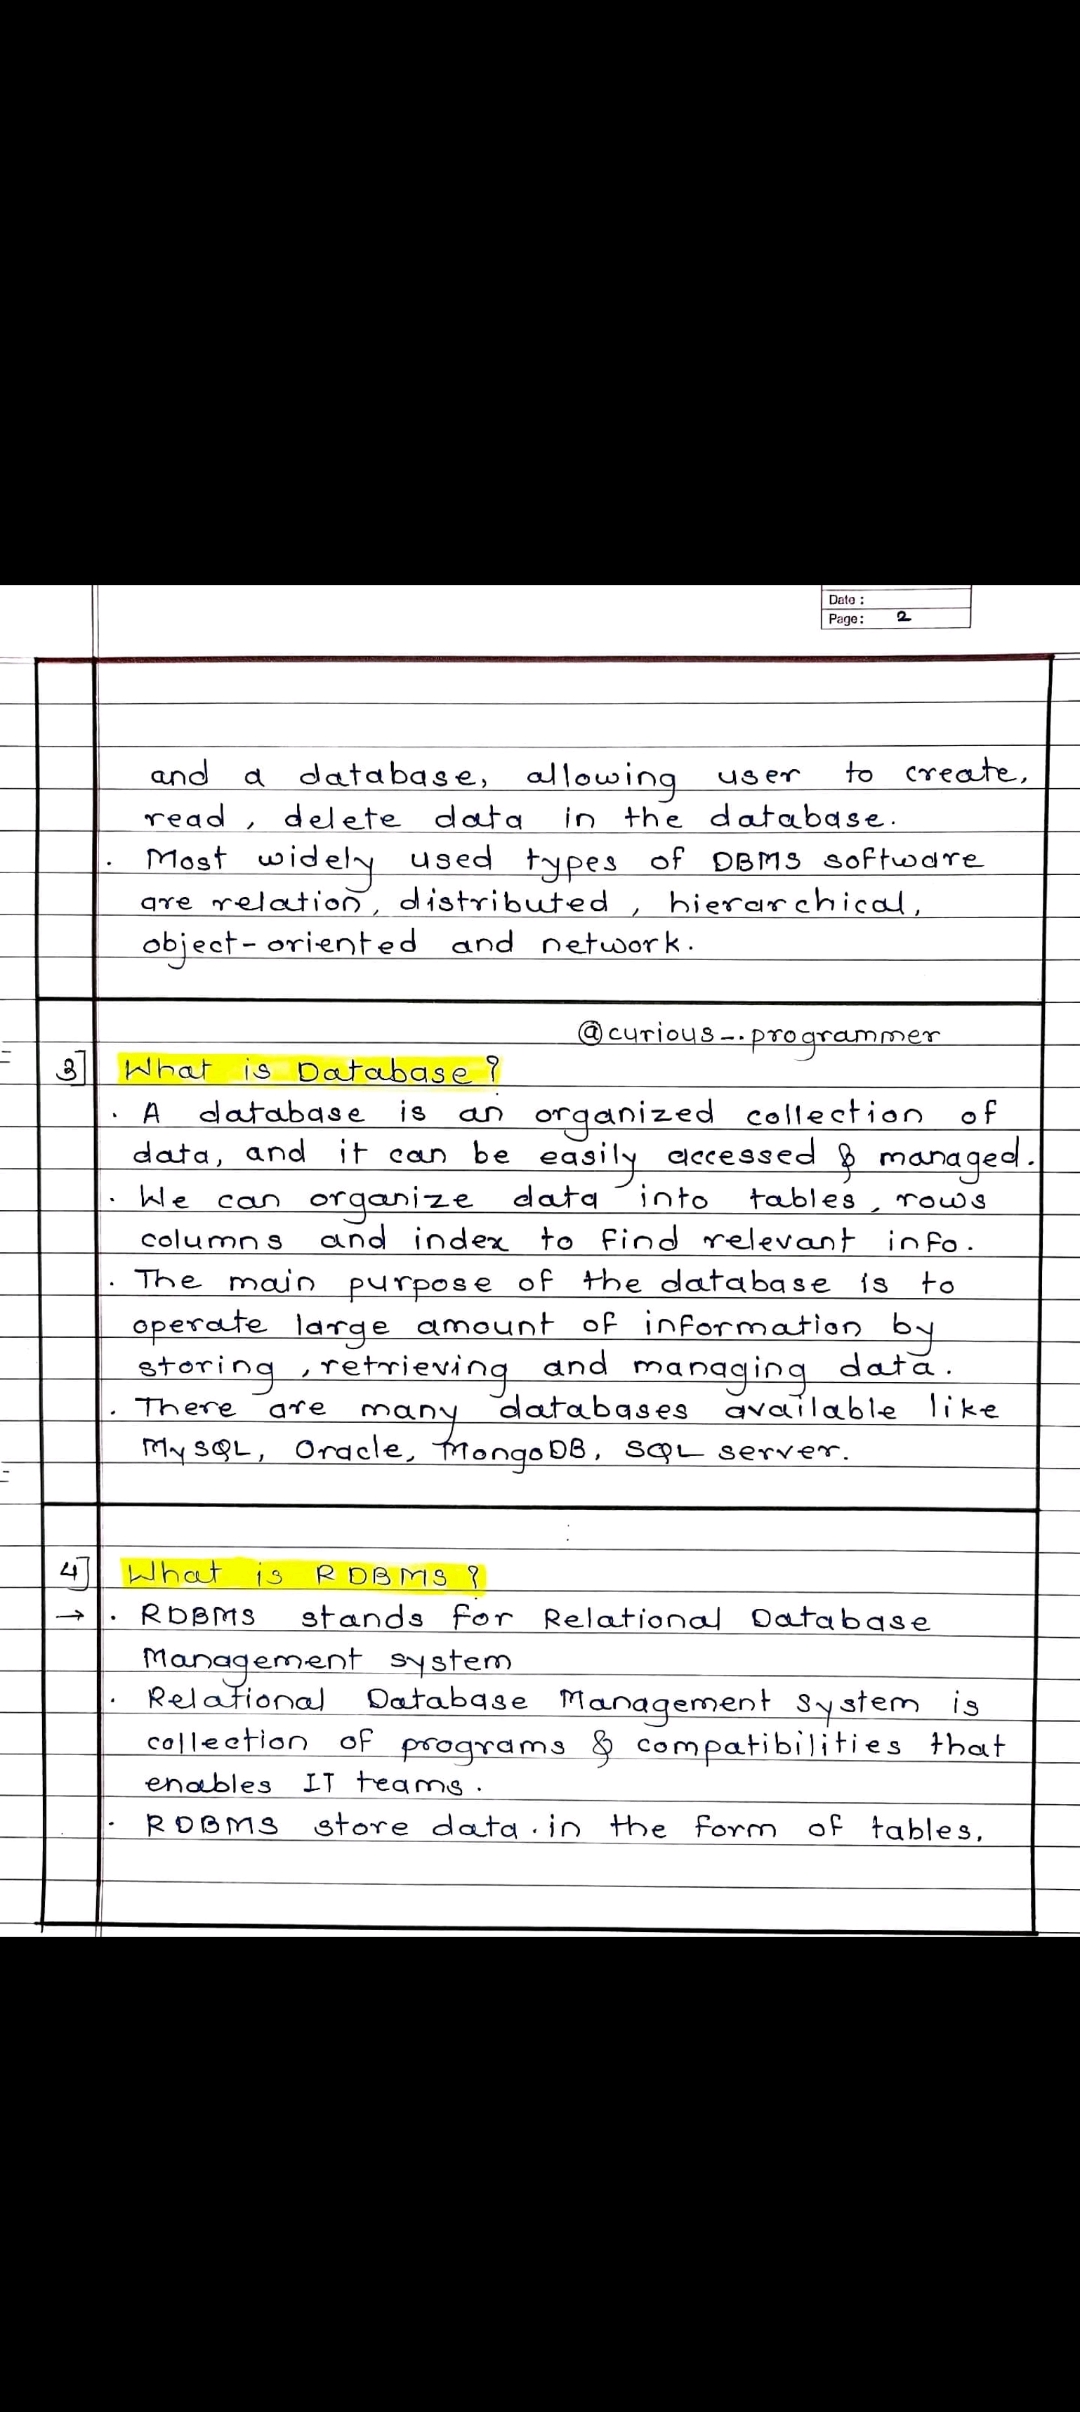 Date :
Page : 2
and a database, allowing user to create,
read, delete data in the database.
. Most widely used types of DBMS software
are relation, distributed, hierarchical,
object-oriented and network.
@curious_..programmer
3] What is Database?
. A database is an organized collection of
data, and it can be easily accessed & managed.
. We can organize data into tables, rows
columns and index to find relevant info.
. The main purpose of the database is to
operate large amount of information by
storing, retrieving and managing data.
. There are many databases available like
MySQL, Oracle, MongoDB, SQL server.
4] What is RDBMS?
→ . RDBMS stands for Relational Database
Management system
. Relational Database Management system is
collection of programs & compatibilities that
enables IT teams.
. RDBMS store data in the form of tables.